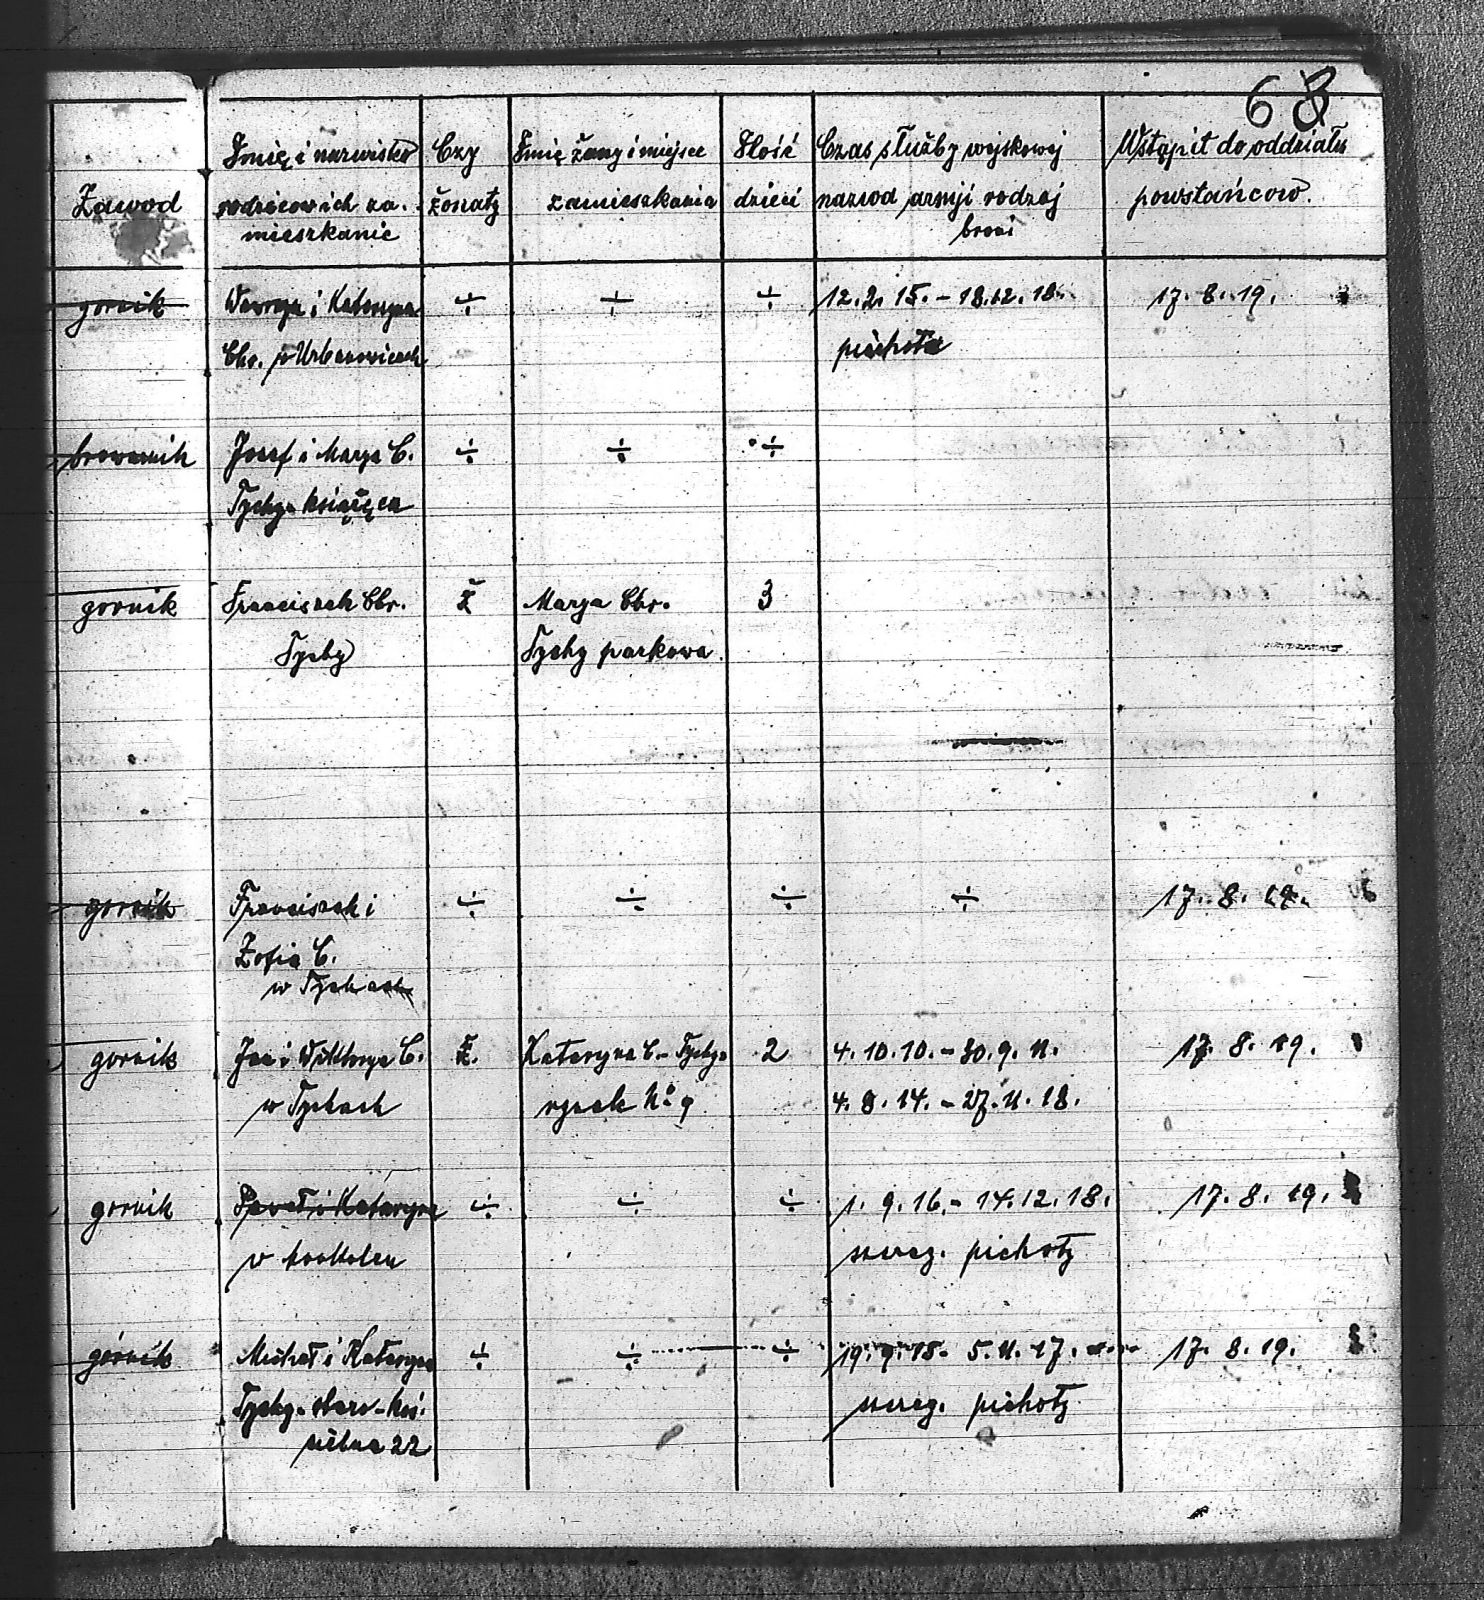 68
Zawod
Imię i nazwisko
rodzicow ich za-
mieszkanie
Czy
żonaty
Imię żony i miejsce
zamieszkania
Ilość
dzieci
Czas służby wojskowej
nazwa armji rodzaj
broni
Wstąpił do oddziału
powstańcow.
gornik
Wawrzyn i Kataryna
Chr. w Urbanowicach
÷
÷
÷
12. 2. 15. – 18. 12. 18.
piechota
17. 8. 19.
browarnik
Josef i Marya C.
Tychy - książęca
÷
÷
÷
gornik
Franciszek Chr.
Tychy
Ż
Marya Chr.
Tychy parkowa
3
gornik
Franciszek i
Zofia C.
w Tychach
÷
÷
÷
÷
17. 8. 19.
gornik
Jan i Wiktorya C.
w Tychach
Ż.
Kataryna C. - Tychy
rynek No 9
2
4. 10. 10. – 30. 9. 11.
4. 8. 14. – 27. 11. 18.
17. 8. 19.
gornik
Paweł i Kataryna
w
÷
÷
÷
1. 9. 16. – 14. 12. 18.
szereg. pichoty
17. 8. 19.
górnik
Michał i Kataryna
Tychy - staro - koś-
cielna 22
÷
÷
÷
19. 9. 15. 5. 11. 17.
szereg. pichoty
17. 8. 19.